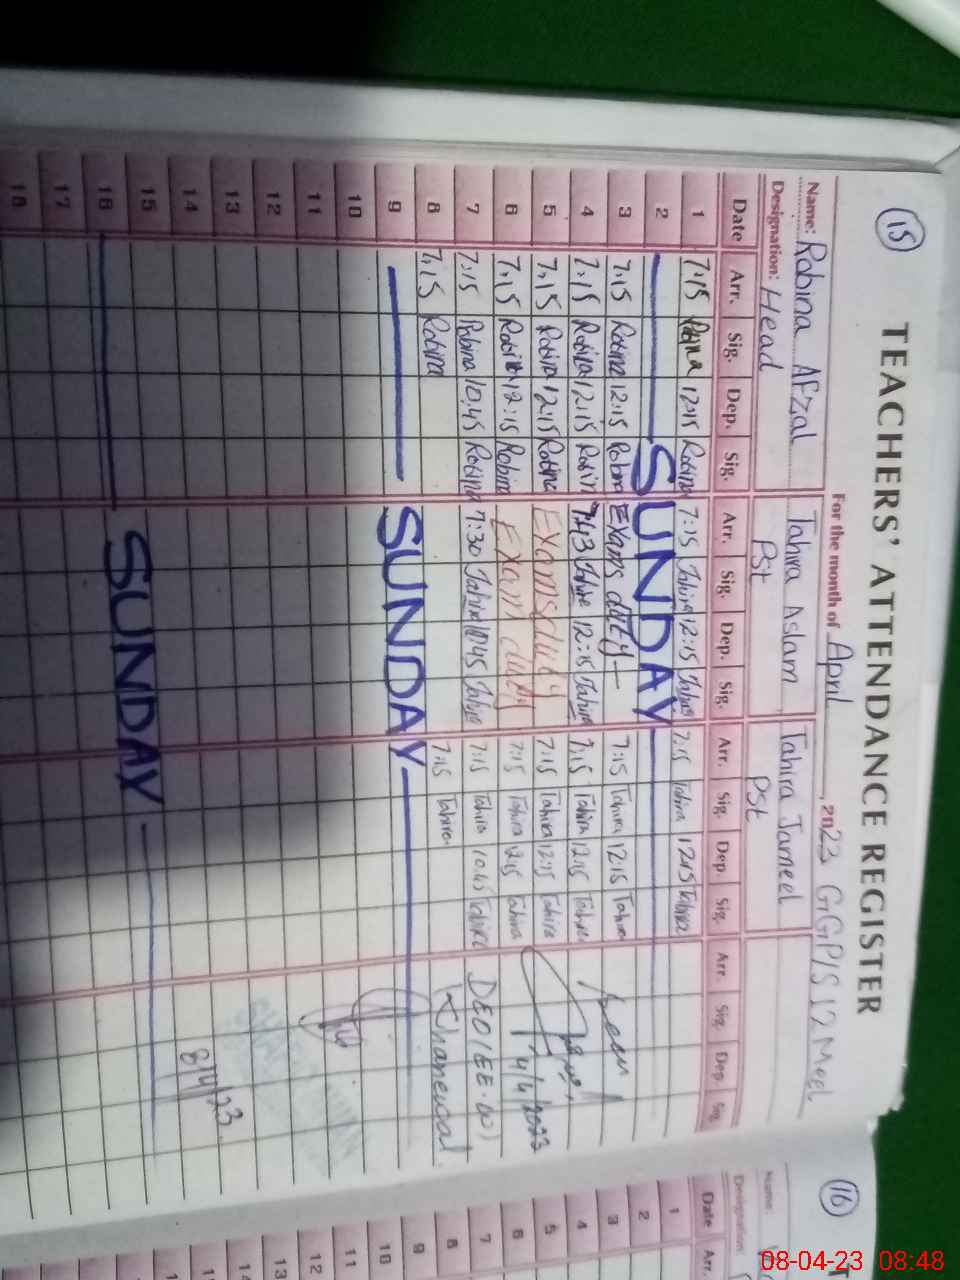 15
TEACHERS' ATTENDANCE REGISTER
For the month of April, 2023 GGP/S 17 Meel
Name: Robina Afzal Tahira Aslam Tahira Jameel
Designation: Head Pst Pst
Date Arr. Sig. Dep. Sig. Arr. Sig. Dep. Sig. Arr. Sig. Dep. Sig. Arr. Sig. Dep. Sig.
1 7:15 Robina 12:15 Robina 7:15 Tahira 12:15 Tahira 7:15 Tahira 12:15 Tahira
2 SUNDAY
3 7:15 Robina 12:15 Robina Exams duty 7:15 Tahira 12:15 Tahira
4 7:15 Robina 12:15 Robin 7:13 Tahira 12:15 Tahira 7:15 Tahira 12:15 Tahira
5 7:15 Robina 12:15 Robina Exams duty 7:15 Tahira 12:15 Tahira
6 7:15 Robina 12:15 Robina Exam duty 7:15 Tahira 12:15 Tahira 4/4/2023
7 7:15 Robina 10:45 Robina 7:30 Tahira 10:45 Tahira 7:15 Tahira 10:45 Tahira DEO (EE-W)
8 7:15 Robina 7:15 Tahira Khanewal
9 SUNDAY
10
11
12
13
14 8/4/23
15
16 SUNDAY
17
18
16
Name:
Designation
Date Arr.
1
2
3
4
5
6
7
8
9
10
11
12
13
14
08-04-23 08:48